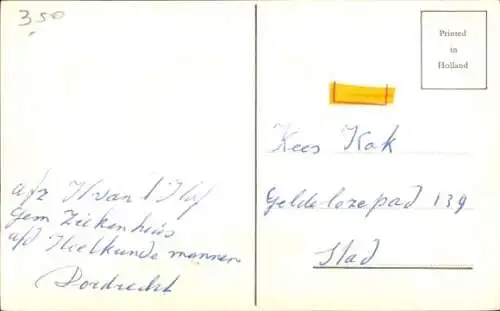 3,50
Printed
in
Holland
Kees Kok
Geldelozepad 139
Stad
afz H van 't Hof
Gem Ziekenhuis
afd Heelkunde mannen
Dordrecht